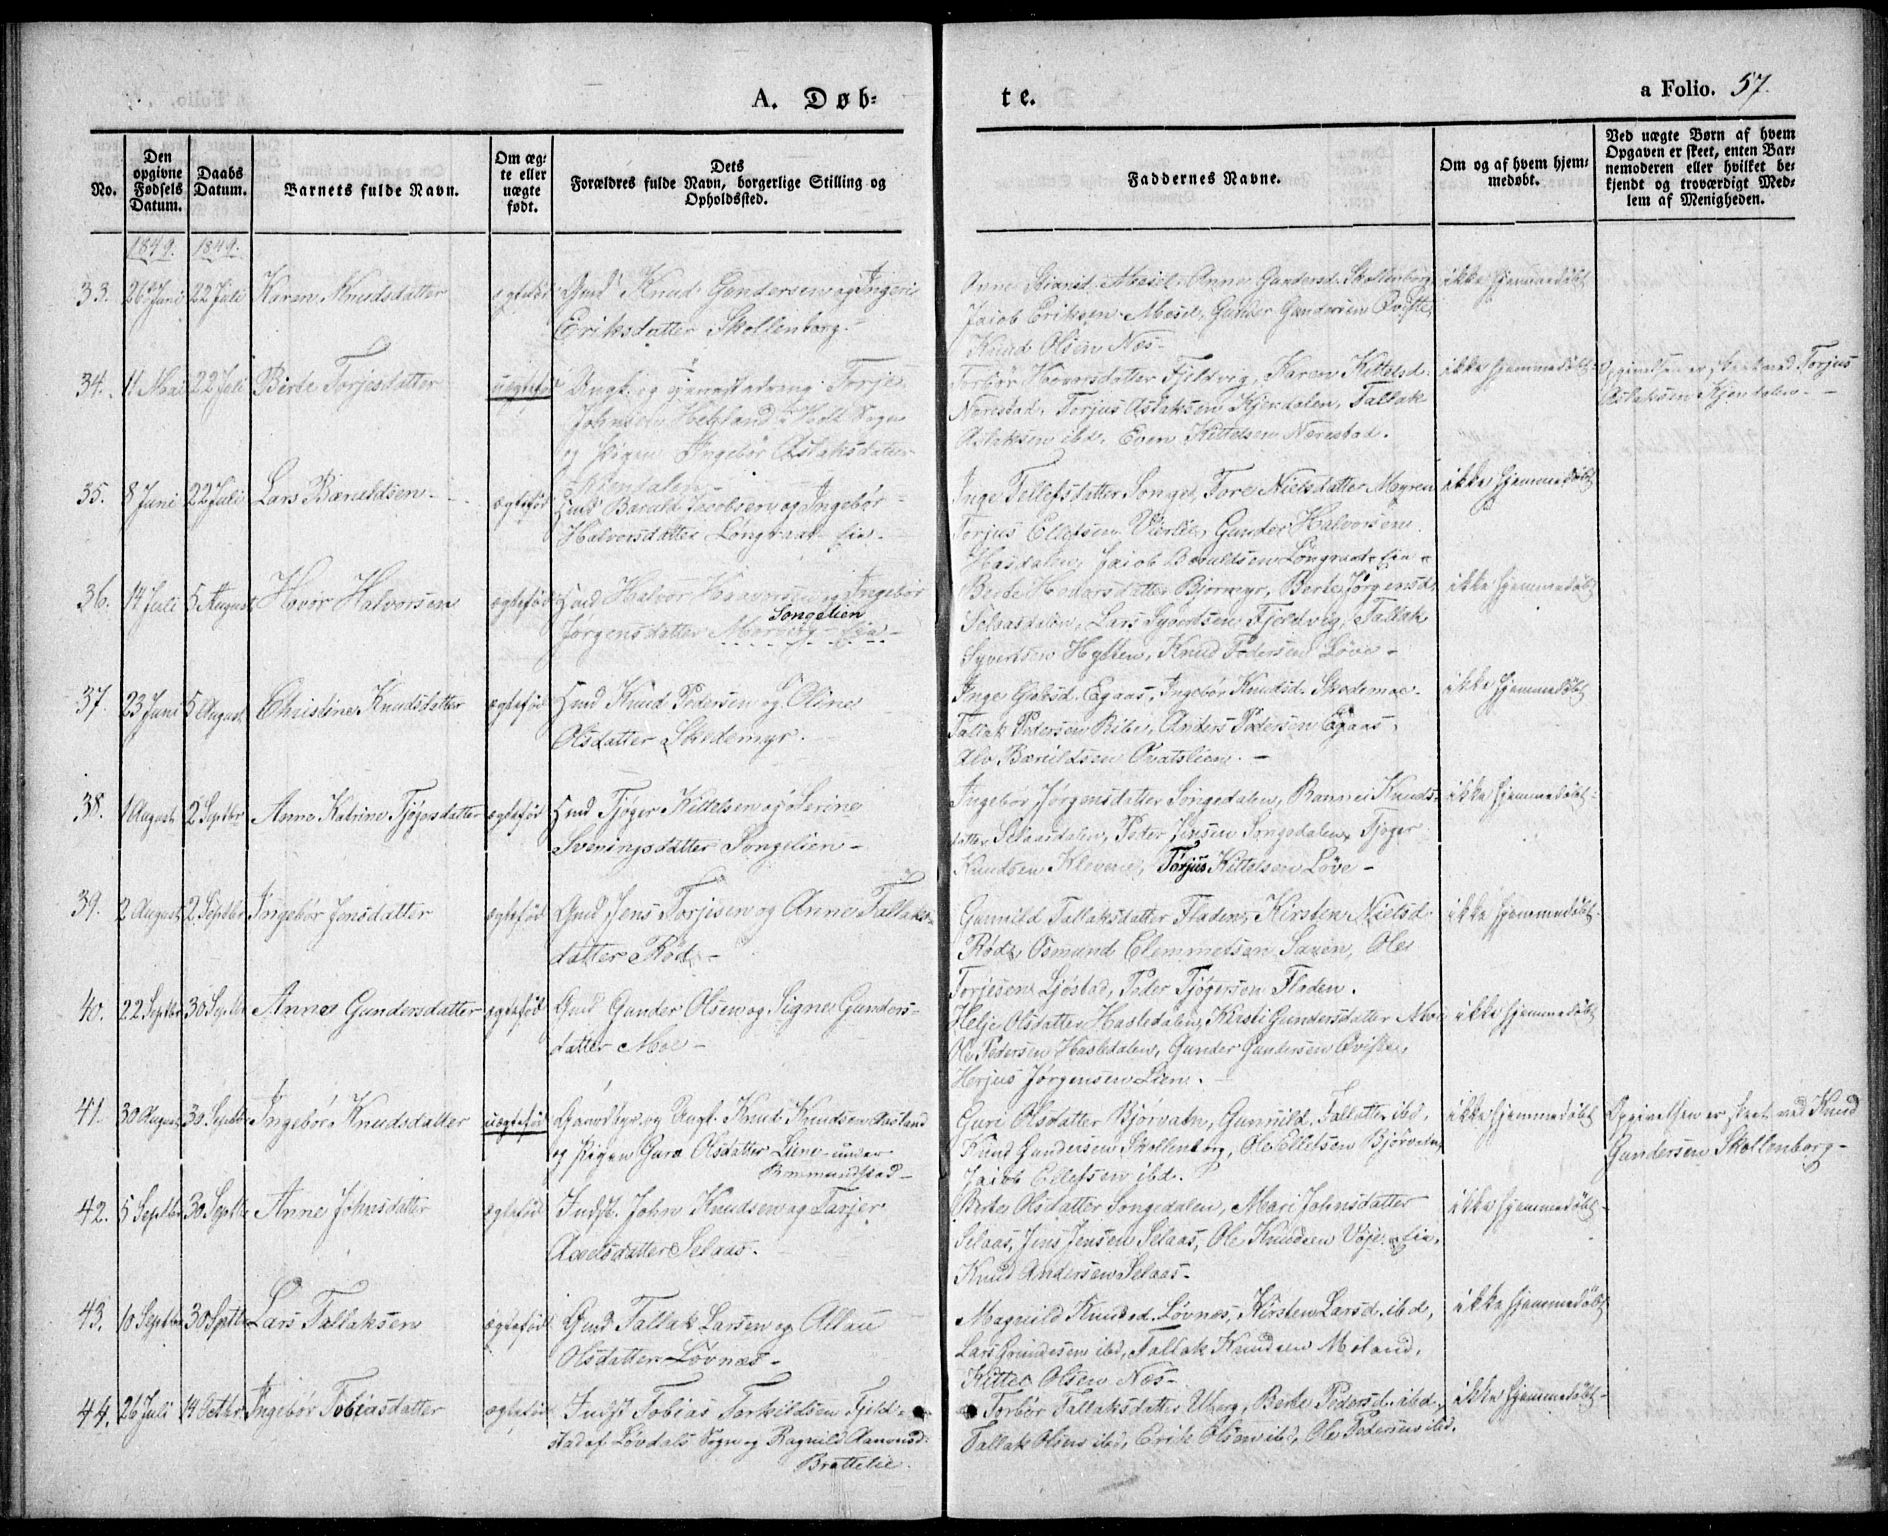 A. Døb-
te.
a Folio. 57.
No.
Den opgivne Fødsels Datum.
Daabs Datum.
Barnets fulde Navn.
Om ægte eller uægte født.
Dets Forældres fulde Navn, borgerlige Stilling og Opholdssted.
Faddernes Navne.
Om og af hvem hjemmedøbt.
Ved uægte Børn af hvem Opgaven er skeet, enten Barnemoderen eller hvilket bekjendt og troværdigt Medlem af Menigheden.
1849. 1849.
33. 26 Juni 22 Juli Karen Knudsdatter ægtefød Gmd Knud Gundersen og Ingerie
Eriksdatter Skollenborg.
Anne Mesel, Anne Gundersd. Skollenborg
Jacob Eriksen Mesel, Gunder Gundersen Qviste,
Knud Olsen Næs-
ikke hjemmedøbt
34. 11 Mai 22 Juli Birte Torjesdatter uægtefød Ungk. og Torje
Johnsen i Holt Sogn
og Pigen Ingebør Aslaksdatter
Kjendalen-
Torbør Hovorsdatter Fjeldvig, Karen Kittelsd.
Nerestad, Torjus Aslaksen Kjendalen, Tallak
Aslaksen ibd, Even Kittelsen Nerestad.
ikke hjemmedøbt
Opgivelsen er skeet ved Torjus
Aslaksen Kjendalen-
35. 8 Juni 22 Juli Lars Baruldsen ægtefød Hmd Baruld Jacobsen og Ingebør
Halvorsdatter Longraat Eie.
Inge Tellefsdatter Songe, Tore Nielsdatter Myren
Torjus Ellefsen Vierlie, Gunder Halvorsen
Hasdalen, Jacob Baruldsen Longraat Eie-
ikke hjemmedøbt
36. 14 Juli 5 August Hovor Halvorsen ægtefød Hmd Halvor Hovorsen og Ingebør
Songelien
Jørgensdatter Eie-
Berte Hovorsdatter Bjormyr, Berte Jørgensd.
Selaasdalen, Lars Syvertsen Fjeldvig, Tallak
Syvertsen Hylten, Knud Pedersen Løve-
ikke hjemmedøbt
37. 23 Juni 5 August Christine Knudsdatter ægtefød Hmd Knud Pedersen og Oline
Olsdatter Skedemyr.
Inge Olesd. Egaas, Ingebør Knudsd. Skedemoe-
Tallak Pedersen Ribe, Anders Pedersen Egaas,
Baruldsen Qvatslien.-
ikke hjemmedøbt
38. 1 August 2 Septbr Anne Katrine Tjøgersdatter ægtefød Hmd Tjøger Kittelsen og Serine
Sveningsdatter Songelien-
Ingebør Jørgensdatter Songedalen, Knuds-
datter Selaasdalen, Peter Jensen Songedalen, Tjøger
Knudsen Klevene, Torjus Kittelsen Løve-
ikke hjemmedøbt
39. 2 August 2 Septbr Ingebør Jensdatter ægtefød Gmd Jens Torjesen og Anne Tallaks-
datter Rød-
Gunnild Tallaksdatter Fladen, Kirsten Nielsd.
Rød, Osmund Clemmetsen Saxen, Ole
Torjesen Ljøstad, Peder Tjøgersen Fladen.
ikke hjemmedøbt
40. 22 Septbr 30 Septbr Anne Gundersdatter ægtefød Gmd Gunder Olsen og Signe Gunders-
datter Moe-
Helje Olsdatter Hasledalen, Kirsti Gundersdatter Moe
Ole Pedersen Hasledalen, Gunder Gundersen Qviste,
Herjus Jørgensen Lien.-
ikke hjemmedøbt
41. 30 August 30 Septbr Ingebør Knudsdatter uægtefød og Ungk. Knud Knudsen Aasland
og Pigen Gura Olsdatter Liene under
Rommundstad-
Guri Olsdatter Bjorvatn, Gunnild ibd,
Knud Gundersen Skollenborg, Ole Ellefsen Bjorvatn,
Jacob Ellefsen ibd.
ikke hjemmedøbt
Opgivelsen er skeet ved Knud
Gundersen Skollenborg-
42. 5 Septbr 30 Septbr Anne Johnsdatter ægtefød Indst. John Knudsen og Tarjer
Axelsdatter Selaas.
Berte Olsdatter Songedalen, Mari Johnsdatter
Selaas, Jens Jensen Selaas, Ole Knudsen Voje Eie,
Knud Andersen Selaas-
ikke hjemmedøbt
43. 10 Septbr 30 Septbr Lars Tallaksen ægtefød Gmd Tallak Larsen og Allau
Olsdatter Løvnæs-
Magnild Knudsd. Løvnes, Kirsten Larsd. ibd,
Lars ibd, Tallak Knudsen Meland,
Kittel Olsen Næs-
ikke hjemmedøbt
44. 26 Juli 14 Octbr. Ingebør Tobiasdatter ægtefød Indst Tobias Terkildsen Fjeld-
stad af Løvdals Sogn og Ragnild Aamundsd.
Brattelie.
Torbør Tallaksdatter Uberg, Berte Pedersd. ibd,
Tallak Olsen ibd, Erik Olsen ibd, Ole Pedersen ibd.
ikke hjemmedøbt-